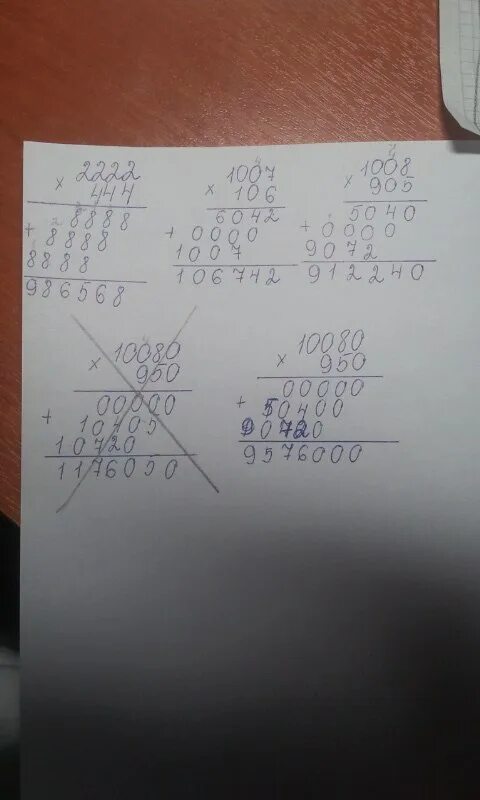 2222
× 444
8888
+ 8888
8888
986568
1007
× 106
6042
+ 0000
1007
106742
1008
× 905
5040
+ 0000
9072
912240
10080
× 950
00000
+ 10405
10720
1176050
10080
× 950
00000
+ 50400
90720
9576000